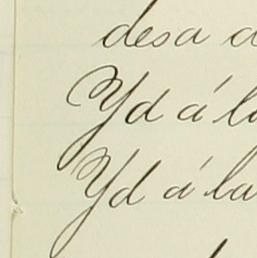 desa
Yd á
Yd á la